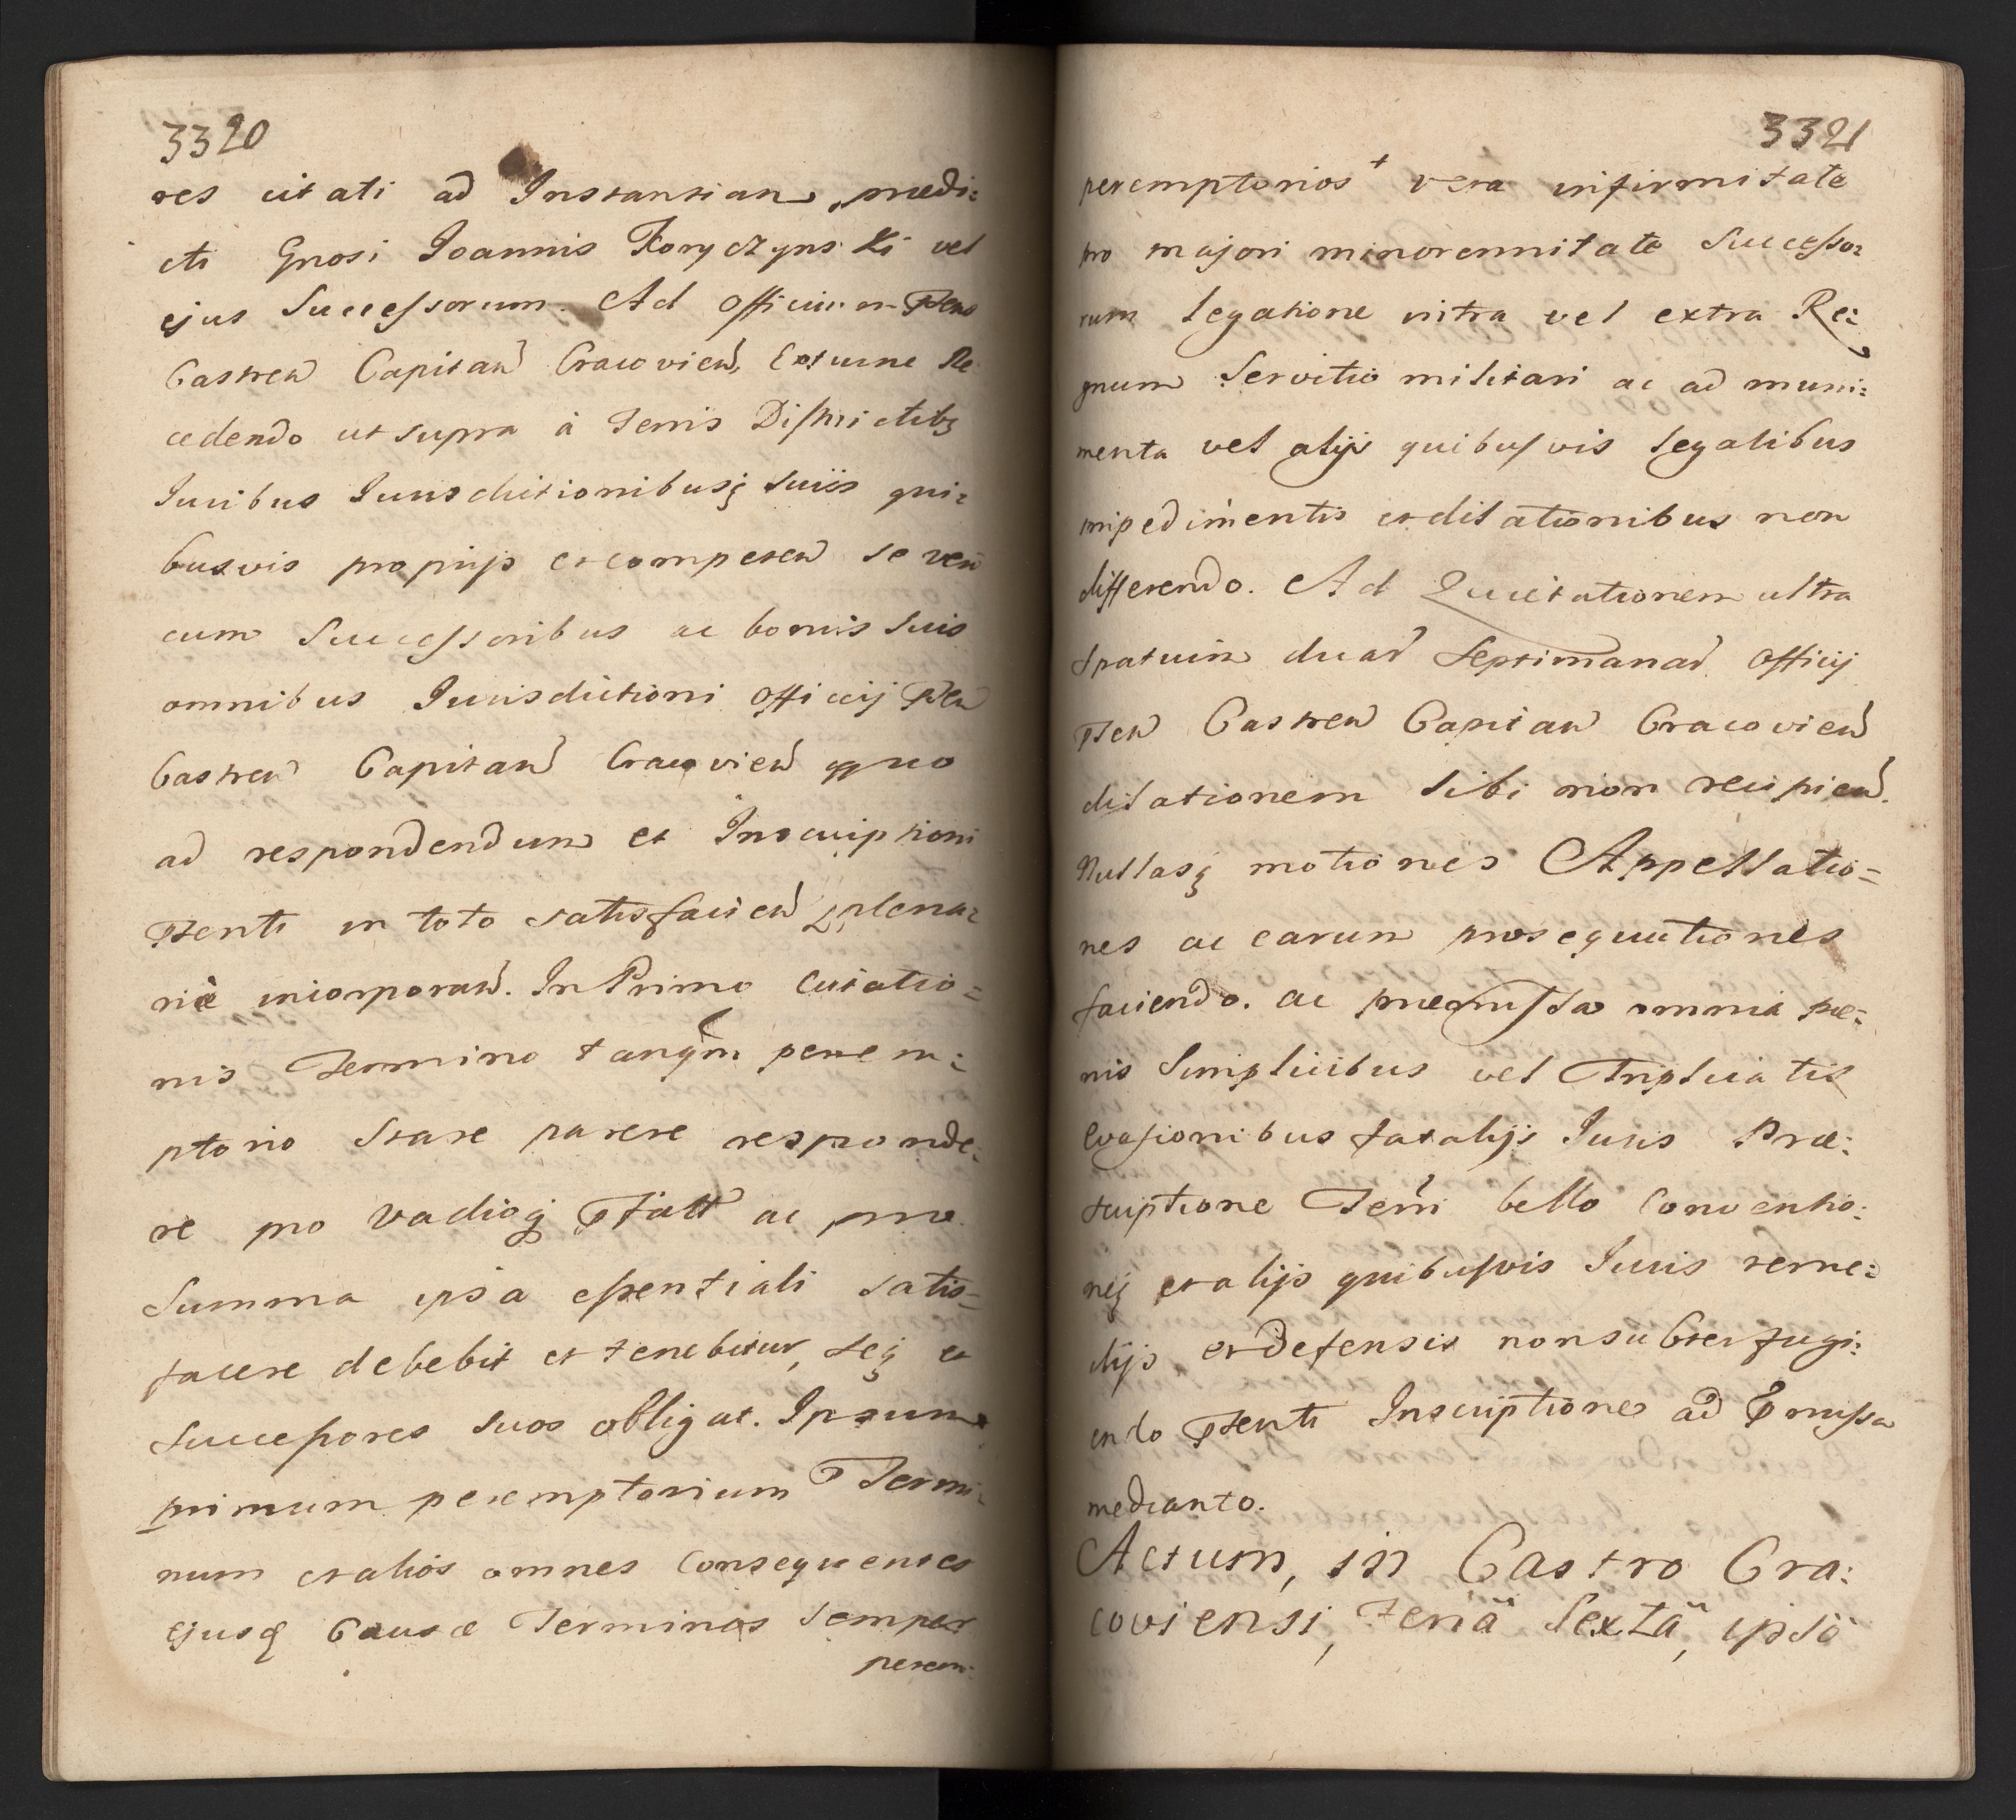 3320
res citati ad Instantiam prædi:
cti Gnosi Joannis Koryczynski vel
ejus Successorum. Ad Officium Pśens
Castren Capitan Cracovien, Ex tunc Re
cedendo ut supra à Terris Districtibȝ
Juribus Jurisdictionibusq suis qui:
busvis propriis et competen se ven
cum Successoribus ac bonis suis
omnibus Jurisdictioni Officij Psen
Castren Capitan Cracovien quo
ad respondendum et Inscriptioni
Psenti in toto satisfacien plena:
riè incorporan. In Primo Citatio=
nis Termino tanqm perem:
ptorio Stare parere responde:
re pro vadioq Pfatt ac pro
Summa ipsa essentiali satis=
facere debebit et tenebitur, seq et
Successores suos obligat. Ipsum
primum peremptorium Termi:
num et alios omnes Consequentes
ejusq Causæ Terminos semper
perem:
3321
peremptorios + vera infirmitate
pro majori minorennitate Successo:
rum legatione intra vel extra Re:
gnum Servitio militari ac ad muni:
menta vel alijs quibusvis legalibus
impedimentis et dilationibus non
differendo. Ad Quietationem ultra
Spatium duar Septimanar Officij
Psen Castren Capitan Cracovien
dilationem sibi non recipien.
Nullasq motiones Appellatio=
nes ac earum prosequutiones
faciendo. ac præmissa omnia pæ:
nis Simplicibus vel Triplicatis
evasionibus fatalijs Juris Præ:
scriptione Terri bello Conventio:
neq et alijs quibusvis Juris reme:
dijs et defensis non subterfugi:
endo Psenti Inscriptione ad Pmissa
mediante.
Actum, in Castro Cra:
coviensi, Feriä Sextä, ipsä